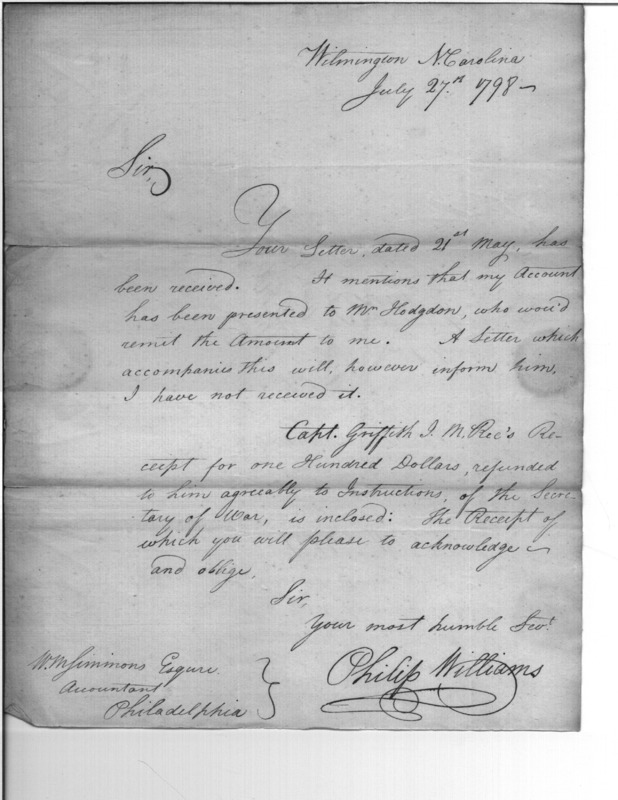 Wilmington N. Carolina
July 27.th 1798
Sir,
Your Letter, dated 21st May, has
been received. It mentions that my Account
has been presented to Mr Hodgdon, who wou'd
remit the Amount to me. A Letter which
accompanies this will, however inform him,
I have not received it.
Capt. Griffith J. McRee's Re-
ceipt for one Hundred Dollars, refunded
to him agreeably to Instructions, of the Secre-
tary of War, is inclosed: The Receipt of
which you will please to acknowledge
and oblige,
Sir,
Your most humble Servt.
Philip Williams
Wm Simmons Esqure.
Acountant
Philadelphia